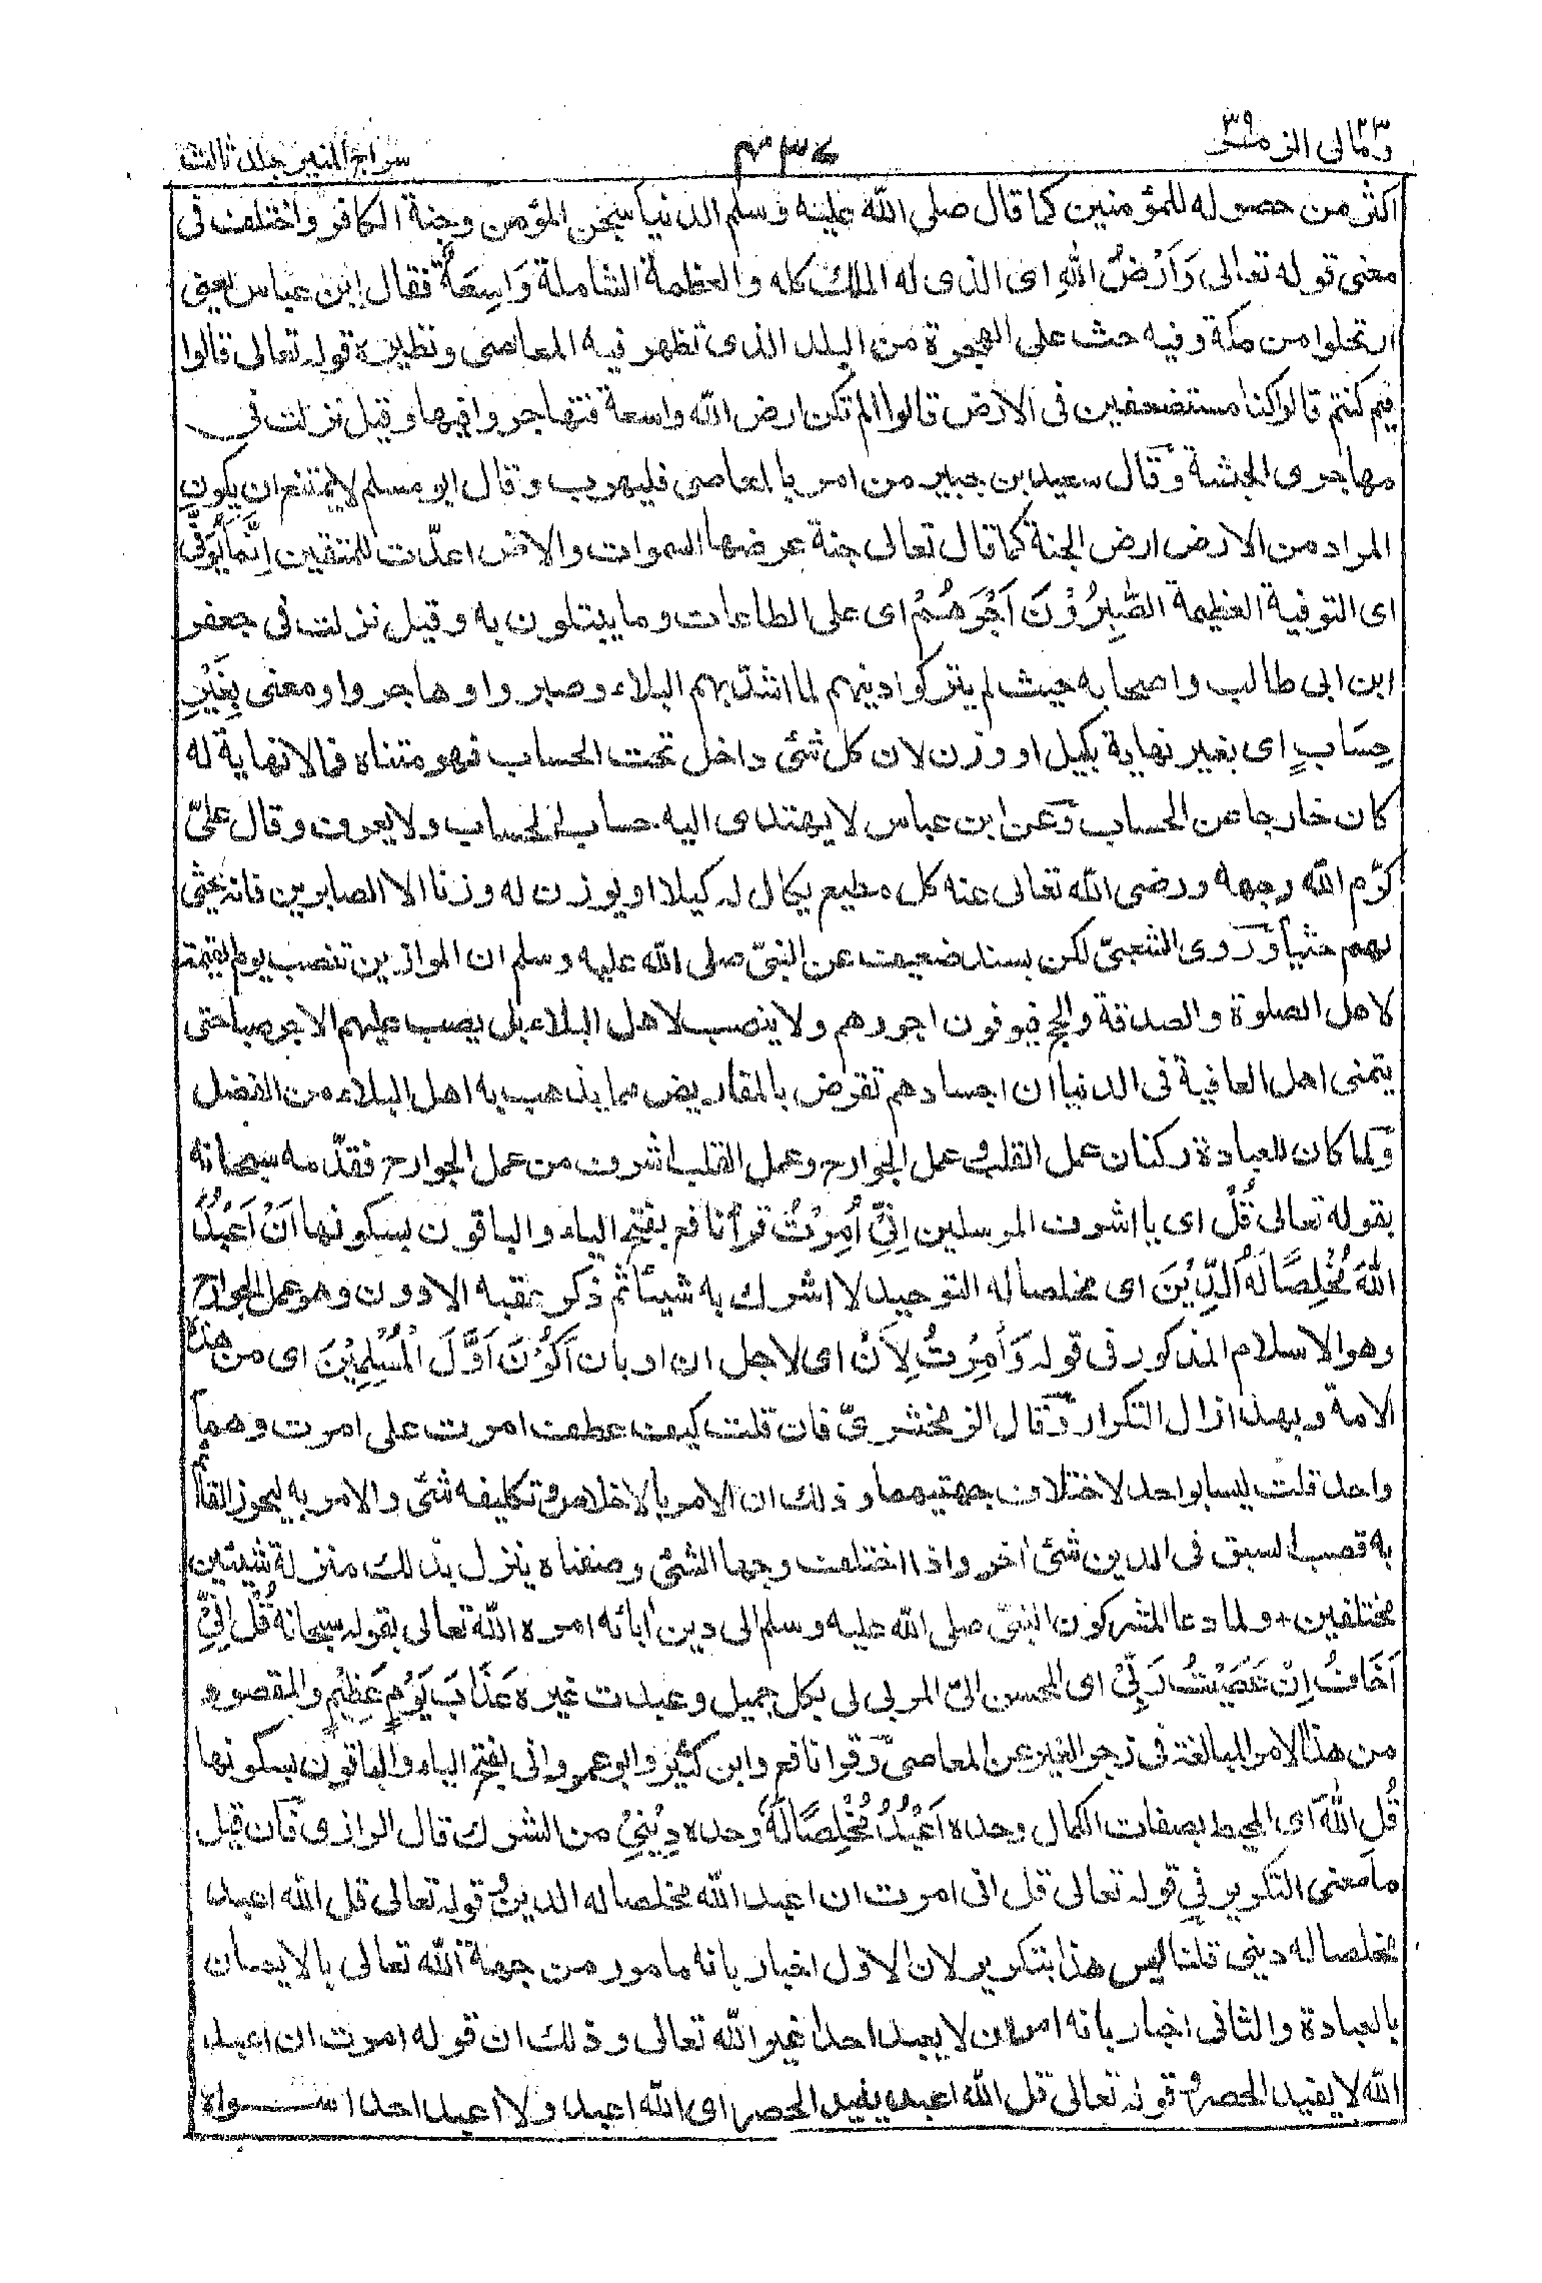 ومالى ٢٣ الزمر ٣٩
٤٣٧
سراج المنير جلد ثالث
اكثر من حصوله للمؤمنين كما قال صلى الله عليه وسلم الدنيا سجن المؤمن وجنة الكافر واختلف فى
معنى قوله تعالى وَاَرْضُ اللهِ اى الذى له الملك كله والعظمة الشاملة وَاسِعَةٌ فقال ابن عباس يعنى
ارتحلوا من مكة وفيه حث على الهجرة من البلد الذى تظهر فيه المعاصى ونظيره قوله تعالى قالوا
فيم كنتم قالوا كنا مستضعفين فى الارض قالوا الم تكن ارض الله واسعة فتهاجروا فيها وقيل نزلت فى
مهاجرى الحبشة وقال سعيد بن جبير من امر بالمعاصى فليهرب وقال ابو مسلم لا يمتنع ان يكون
المراد من الارض ارض الجنة كما قال تعالى جنة عرضها السموات والارض اعدّت للمتقين اِنَّمَا يُوَفَّى
اى التوفية العظيمة الصّٰبِرُوْنَ اَجْرَهُمْ اى على الطاعات وما يبتلون به وقيل نزلت فى جعفر
ابن ابى طالب واصحابه حيث لم يتركوا دينهم لما اشتد بهم البلاء وصبروا وهاجروا ومعنى بِغَيْرِ
حِسَابٍ اى بغير نهاية بكيل او وزن لان كل شئ داخل تحت الحساب فهو متناه فما لا نهاية له
كان خارجا عن الحساب وعن ابن عباس لا يهتدى اليه حساب الحساب ولا يعرف وقال علىّ
كرّم الله وجهه ورضى الله تعالى عنه كل مطيع يكال له كيلا او يوزن له وزنا الا الصابرين فانه يحثى
لهم حثيا وروى الشعبىّ لكن بسند ضعيف عن النبىّ صلى الله عليه وسلم ان الموازين تنصب يوم القيمة
لاهل الصلوة والصدقة والحج فيوفون اجورهم ولا ينصب لاهل البلاء بل يصب عليهم الاجر صبا حتى
يتمنى اهل العافية فى الدنيا ان اجسادهم تقرض بالمقاريض مما يذهب به اهل البلاء من الفضل
ولما كان للعبادة ركنان عمل القلب وعمل الجوارح وعمل القلب اشرف من عمل الجوارح فقدّمه سبحانه
بقوله تعالى قُلْ اى يا اشرف المرسلين اِنِّىْ اُمِرْتُ قرأ نافع بفتح الياء والباقون بسكونها اَنْ اَعْبُدَ
اللهَ مُخْلِصًا لَهُ الدِّيْنَ اى مخلصا له التوحيد لا اشرك به شيئا ثم ذكر عقبه الادون وهو عمل الجوارح
وهو الاسلام المذكور فى قوله وَاُمِرْتُ لِاَنْ اى لاجل ان او بان اَكُوْنَ اَوَّلَ الْمُسْلِمِيْنَ اى من هذه
الامة وبهذا زال التكرار وقال الزمخشرىّ فان قلت كيف عطف امرت على امرت وهما
واحد قلت ليسا بواحد لاختلاف جهتيهما وذلك ان الامر بالاخلاص وتكليفه شئ والامر به ليحوز القائم
به قصب السبق فى الدين شئ اخر واذا اختلفت وجها الشئ وصفتاه ينزل بذلك منزلة شيئين
مختلفين + ولما دعا المشركون النبىّ صلى الله عليه وسلم الى دين آبائه امره الله تعالى بقوله سبحانه قُلْ اِنِّىْ
اَخَافُ اِنْ عَصَيْتُ رَبِّىْ اى المحسن الىّ المربى لى بكل جميل وعبدت غيره عَذَابَ يَوْمٍ عَظِيْمٍ والمقصود
من هذا الامر المبالغة فى زجر الغير عن المعاصى وقرا نافع وابن كثير وابو عمرو انى بفتح الياء والباقون بسكونها
قُلِ اللهَ اى المحيط بصفات الكمال وحده اَعْبُدُ مُخْلِصًا لَهُ وحده دِيْنِىْ من الشرك قال الرازى فان قيل
ما معنى التكرير فى قوله تعالى قل انى امرت ان اعبد الله مخلصا له الدين وقوله تعالى قل الله اعبد
مخلصا له دينى قلنا ليس هذا بتكرير لان الاول اخبار بانه مامور من جهة الله تعالى بالايمان
بالعبادة والثانى اخبار بانه امر ان لا يعبد احدا غير الله تعالى وذلك ان قوله امرت ان اعبد
الله لا يفيد الحصر وقوله تعالى قل الله اعبد يفيد الحصر اى الله اعبد ولا اعبد احدا سواه